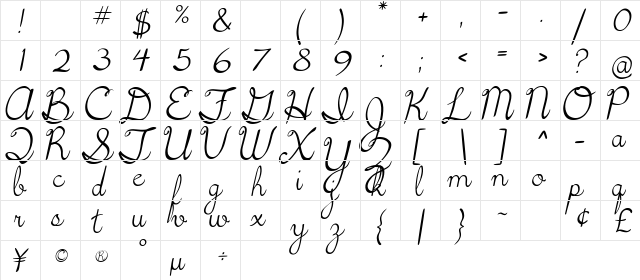 ! # $ % & ( ) * + , - . / 0
1 2 3 4 5 6 7 8 9 : ; < = > ? @
A B C D E F G H I J K L M N O P
Q R S T U V W X Y Z [ \ ] ^ - a
b c d e f g h i j k l m n o p q
r s t u v w x y z { | } ~ ¢ £
¥ © ® ° µ ÷